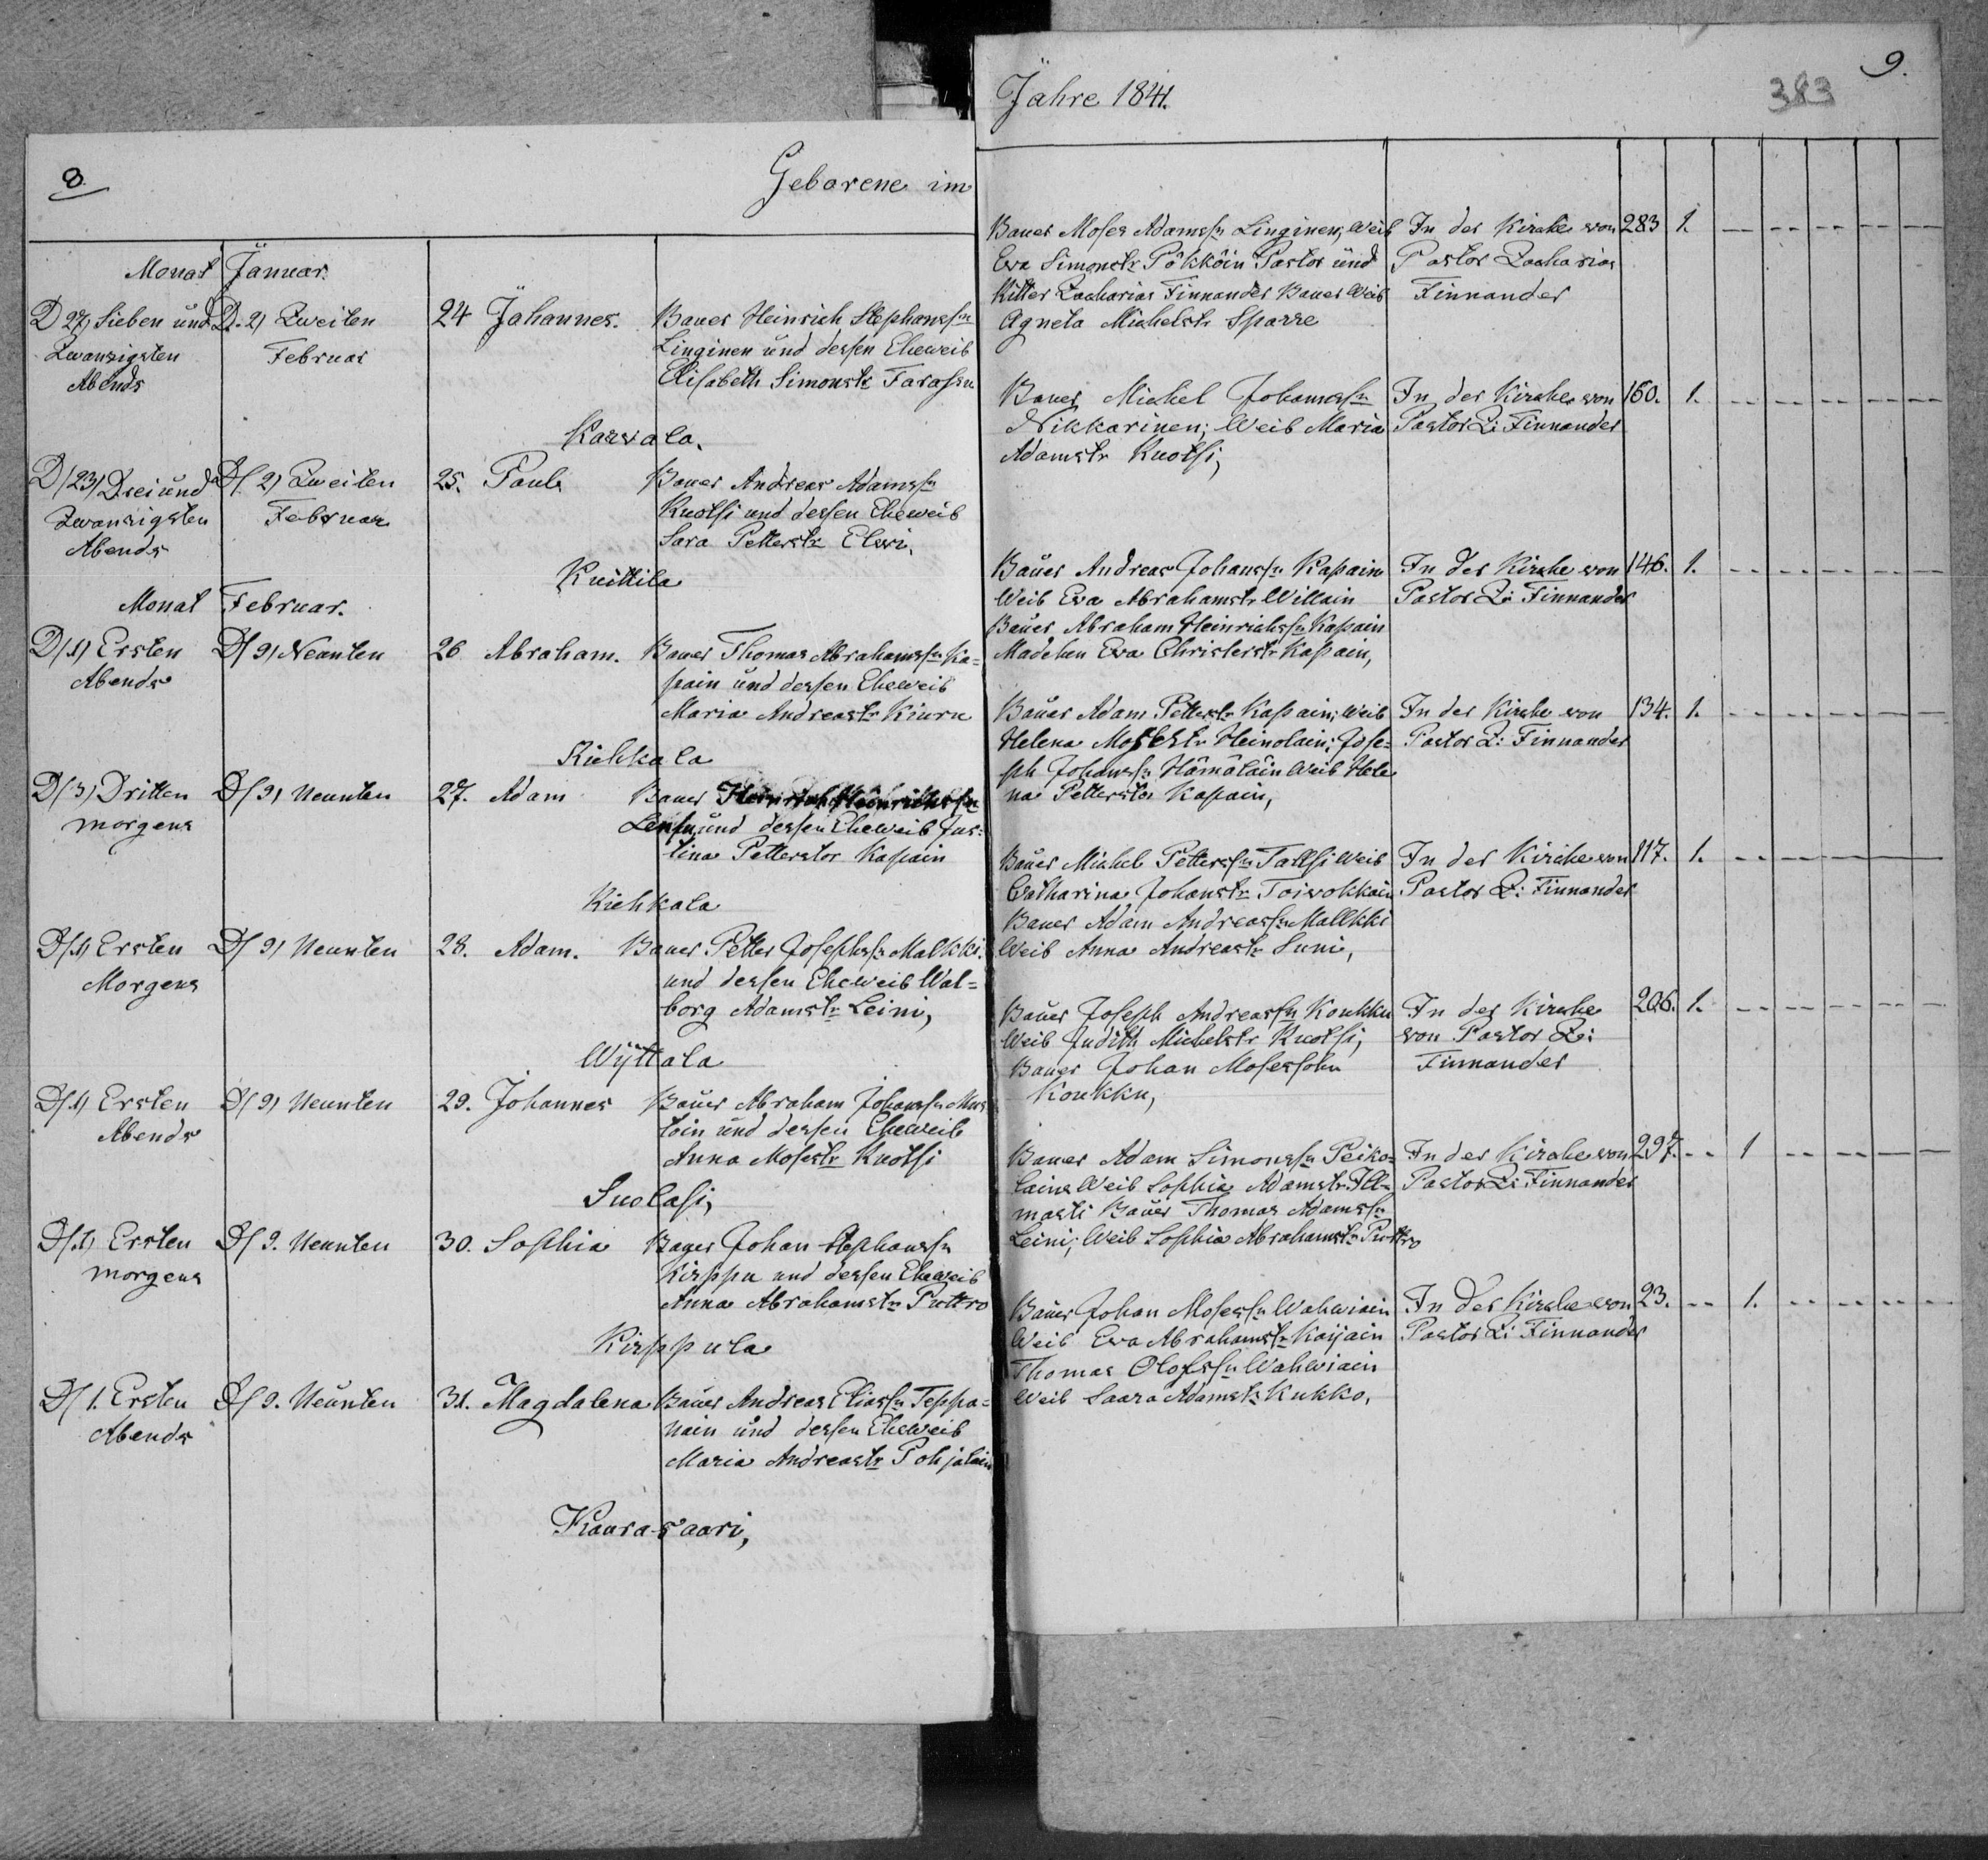 8.
Geborene im
Monat Januar.
D 27, Sieben und
Zwanzigsten
Abends
D. 2, Zweiten
Februar
24 Johannes.
Bauer Heinrich Stephanssn
Linginen und dessen Eheweib
Elisabeth Simonstr Farassu
Karvala.
D/23) Drei und
Zwanzigsten
Abends
D/ 2) Zweiten
Februar
25. Paul
Bauer Andreas Adamssn
Kuotsi und dessen Eheweib
Sara Petterstr Elwi.
Knittila
Monat Februar.
D/1) Ersten
Abends
D/ 9) Neunten
26 Abraham.
Bauer Thomas Abrahamssn Ka=
pain und dessen Eheweib
Maria Andreastr Kiuru
Riehkala
D/3) Dritten
morgens
D/9) Neunten
27. Adam
Bauer Heinrich Heinrichssn
und dessen Eheweib Jus=
tina Petterstor Kapain
Riehkala
D/1) Ersten
Morgens
D/ 9) Neunten
28. Adam.
Bauer Petter Josephssn Malkki.
und dessen Eheweib Wal=
borg Adamstr Leini,
Wÿttala
D/1) Ersten
Abends
D/ 9) Neunten
29. Johannes
Bauer Abraham Johanssn Mus
toin und dessen Eheweib
Anna Mosestr Kuotsi
Suolasi,
D/1) Ersten
morgens
D/ 9. Neunten
30. Sophia
Bauer Johan Stephanssn
Kirppu und dessen Eheweib
Anna Abrahamstr Puttro
Kirppula
D/ 1. Ersten
Abends
D/ 9. Neunten
31. Magdalena
Bauer Andreas Eliassn Teppa=
nain und dessen Eheweib
Maria Andreastr Pohjalain
Kaurasaari,
Jahre 1841.
383
9.
Bauer Moses Adamssn Linginen, Weib
Eva Simonstr Pökköin Pastor und
Ritter Zacharias Finnander Bauer Weib
Agneta Michelstr Sparre
In der Kirche von
Pastor Zacharias
Finnander
283 1.
Bauer Michel Johanssn
Nikkarinen; Weib Maria
Adamstr Kuotsi,
In der Kirche von
Pastor Z: Finnander
160. 1.
Bauer Andreas Johanssn Kapain
Weib Eva Abrahamstr Willain
Bauer Abraham Heinrichssn Kapain
Madchen Eva Christerstr Kapain,
In der Kirche von
Pastor Z: Finnander
146. 1.
Bauer Adam Petterstr Kapain; Weib
Helena Mosestr Heinolain; Jose=
ph Johanssn Hämäläin Weib Hele
na Petterstor Kapain,
In der Kirche von
Pastor Z: Finnander
134. 1.
Bauer Michel Petterssn Tallsi Weib
Catharina Johanstr Toiwokkain
Bauer Adam Andreassn Mallkki
Weib Anna Andreastr Suni,
In der Kirche von
Pastor Z: Finnander
117. 1.
Bauer Joseph Andreassn Koukku
Weib Judith Michelstr Kuotsi,
Bauer Johan Mosessohn
Koukku,
In der Kirche
von Pastor Z:
Finnander
206. 1.
Bauer Adam Simonssn Peiko=
lain Weib Sophia Adamstr Ill=
masti Bauer Thomas Adamssn
Leini; Weib Sophia Abrahamstr Puttro
In der Kirche von
Pastor Z: Finnander
297. 1
Bauer Johan Mosessn Wahwiain
Weib Eva Abrahamstr Kaijain
Thomas Olofssn Wahwiain
Weib Saara Adamstr Kukko,
In der Kirche von
Pastor Z: Finnander
23. 1.